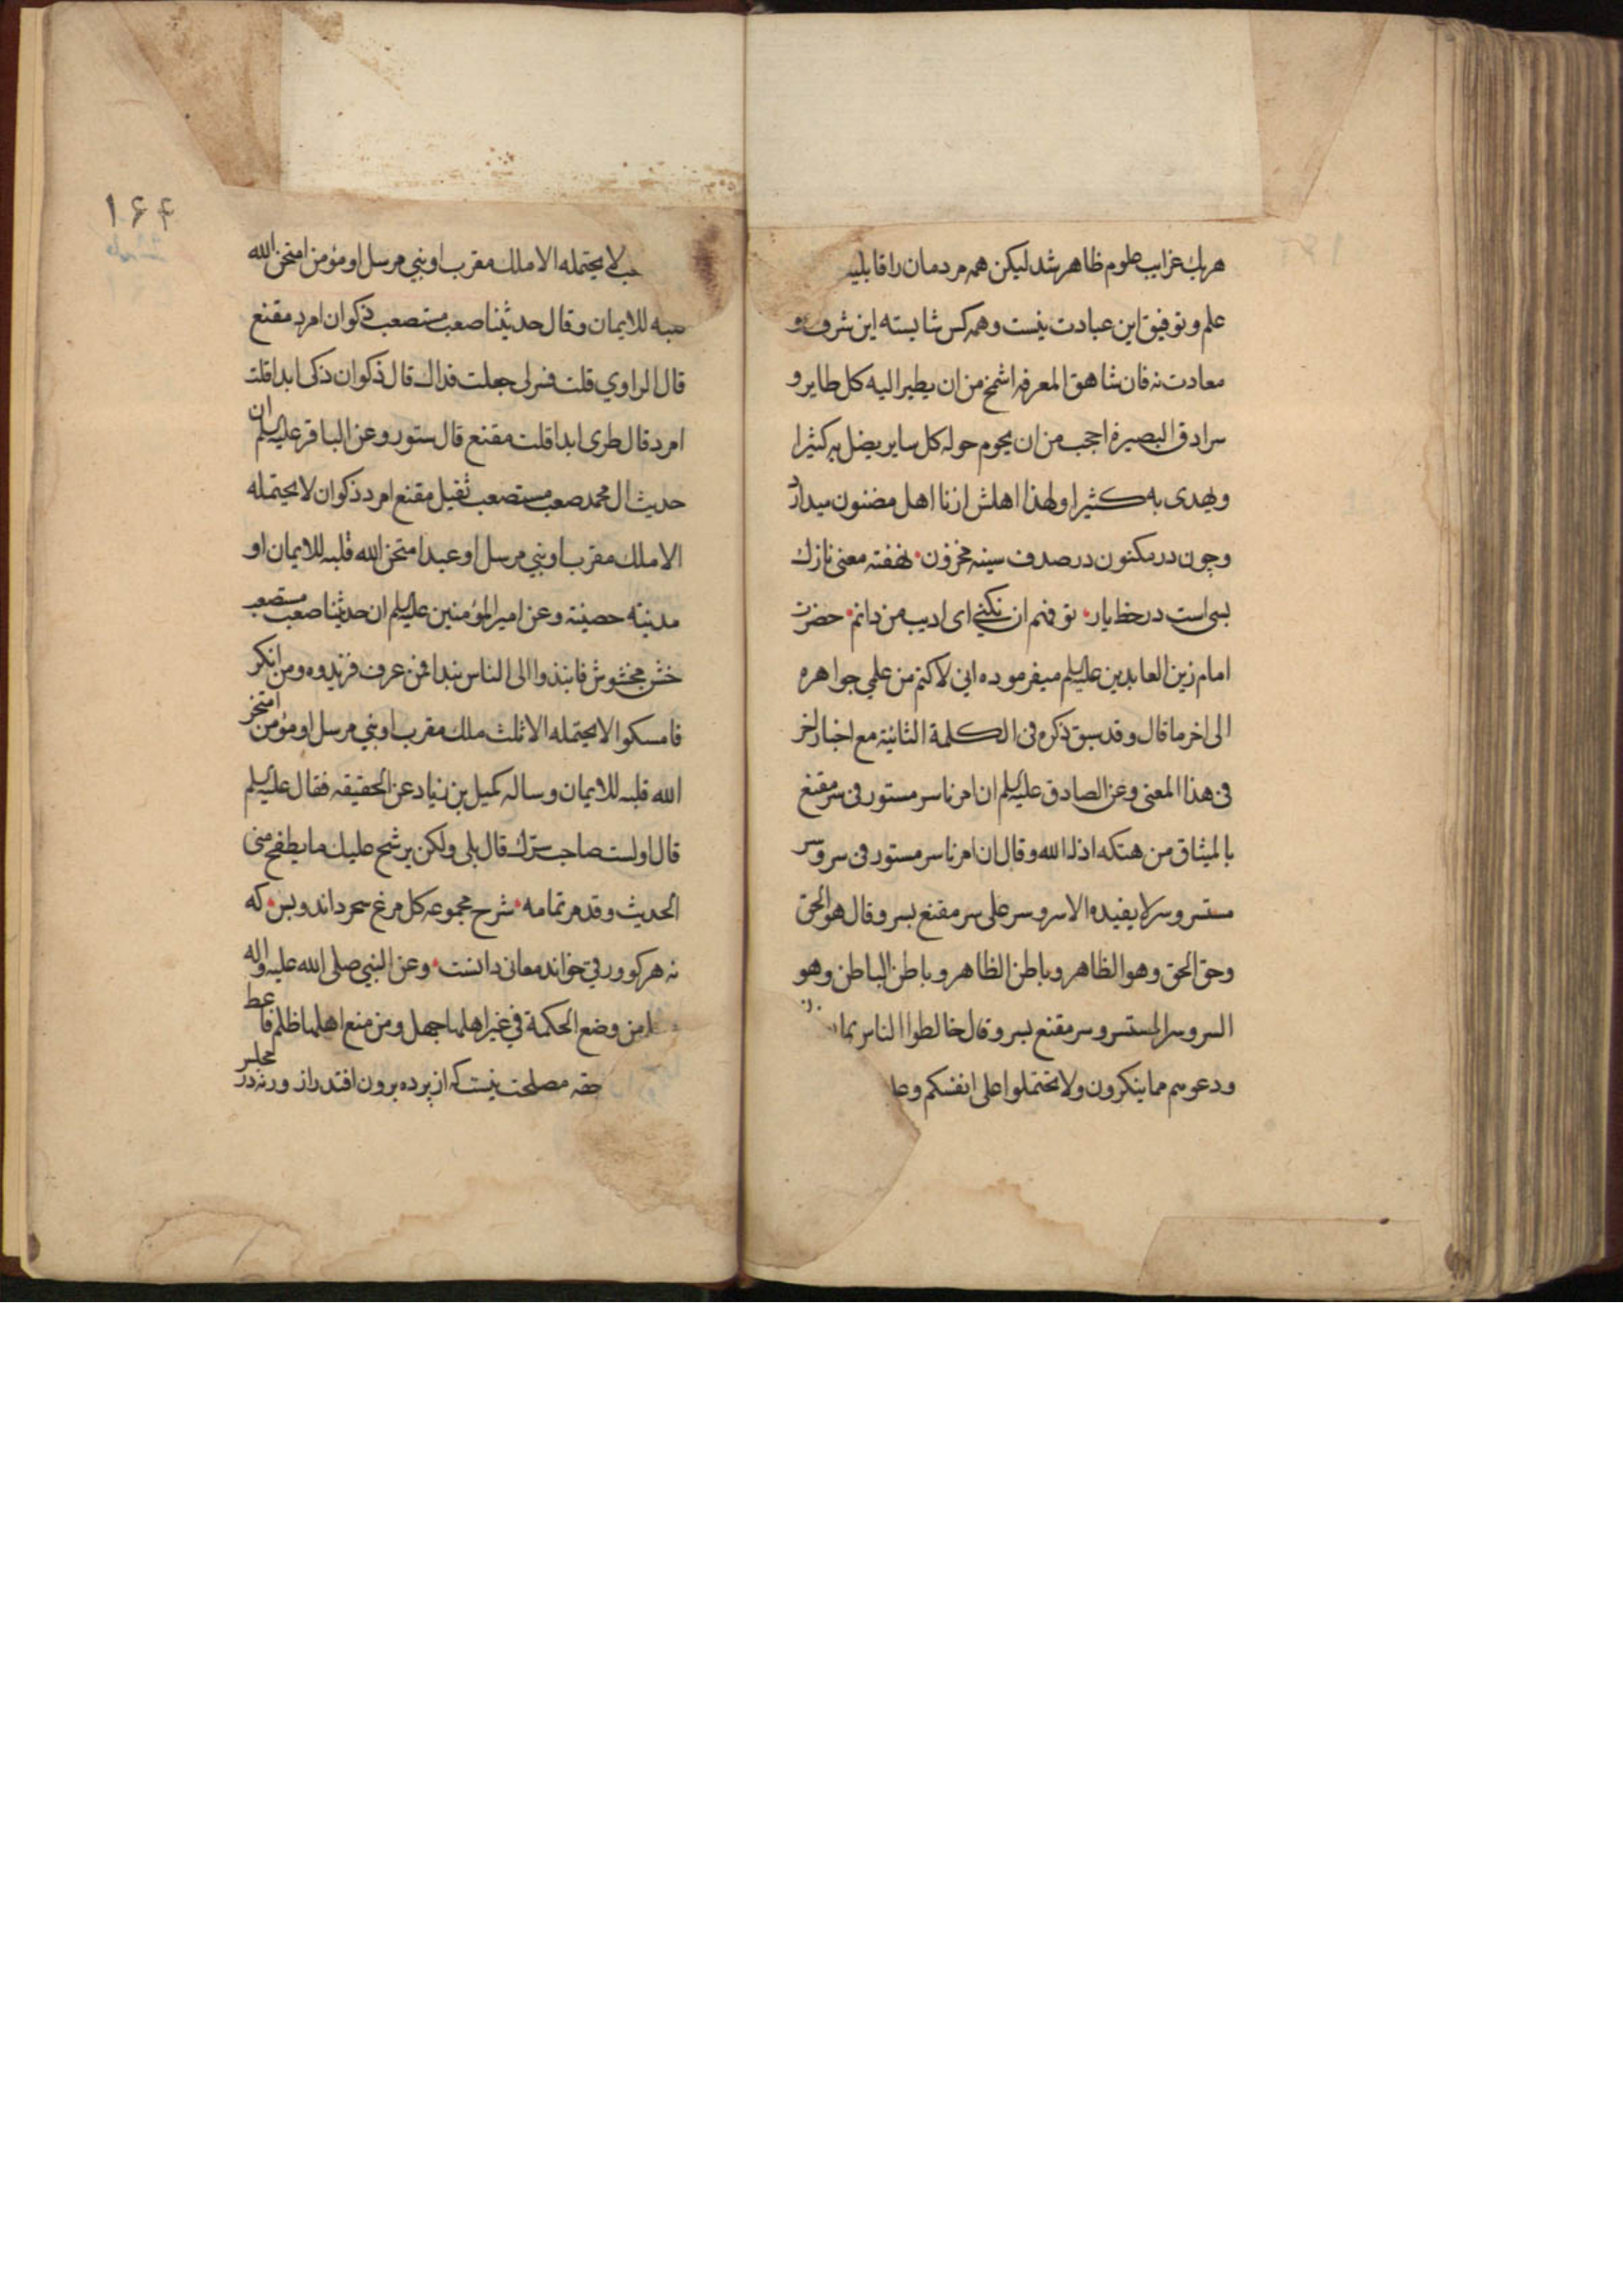 هریك غرایب علوم ظاهر شد لیکن همه مردمان را قابلیة
علم و توفیق این عبادت نیست و همه کس شایسته این شرف و
سعادت نه فان شاهق المعرفه اشمخ من ان یطیر الیه کل طایر و
سرادق البصیرة احجب من ان یحوم حوله کل سایر یضل به کثیرا
و یهدی به کثیرا و لهذا اهلش از نا اهل مضنون میدارد
و چون در مکنون در صدف سینه مخزون نهفته معنی نازك
بسی است در خط یار تو فهم آن نکنی ای ادیب من دانم حضرت
امام زین العابدین علیه السلم میفرموده انی لاکتم من علمی جواهره
الی اخر ما قال و قد سبق ذکره فی الکلمة الثانیة مع اخبار اخر
فی هذا المعنی و عن الصادق علیه السلم ان امرنا سر مستور فی سر مقنع
بالمیثاق من هتکه اذله الله و قال ان امرنا سر مستور فی سر و سر
مستسر و سر لا یفیده الا سر و سر علی سر مقنع بسر و قال هو الحق
و حق الحق و هو الظاهر و باطن الظاهر و باطن الباطن و هو
السر و سر المستسر و سر مقنع بسر و قال خالطوا الناس بما
و دعوهم مما ینکرون و لا تحتملوا علی انفسکم و علـ
۱۶۴
لا یحتمله الا ملك مقرب او نبی مرسل او مؤمن امتحن الله
قلبه للایمان و قال حدیثنا صعب مستصعب ذکوان امرد مقنع
قال الراوي قلت فسر لی جعلت فداك قال ذکوان ذکی ابدا قلت
امرد قال طری ابدا قلت مقنع قال ستور و عن الباقر علیه السلم ان
حدیث ال محمد صعب مستصعب ثقیل مقنع امرد ذکوان لا یحتمله
الا ملك مقرب او نبی مرسل او عبد امتحن الله قلبه للایمان او
مدینة حصینة و عن امیر المؤمنین علیه السلم ان حدیثنا صعب مستصعب
خشن مخشوش فانبذوا الی الناس نبذا فمن عرف فزیدوه و من انکر
فامسکوا لا یحتمله الا ثلث ملك مقرب او نبی مرسل او مؤمن امتحن
الله قلبه للایمان و ساله کمیل بن زیاد عن الحقیقه فقال علیه السلم
قال اولست صاحب سرّك قال بلی و لکن یرشح علیك ما یطفح منی
الحدیث و قد مر تمامه شرح مجموعه کل مرغ سحر داند و بس که
نه هر کو ورقی خواند معانی دانست و عن النبی صلی الله علیه و اله
من وضع الحکمة فی غیر اهلها جهل و من منع اهلها ظلم فاعط
حقه مصلحت نیست که از پرده برون افتد راز ورنه در مجلس